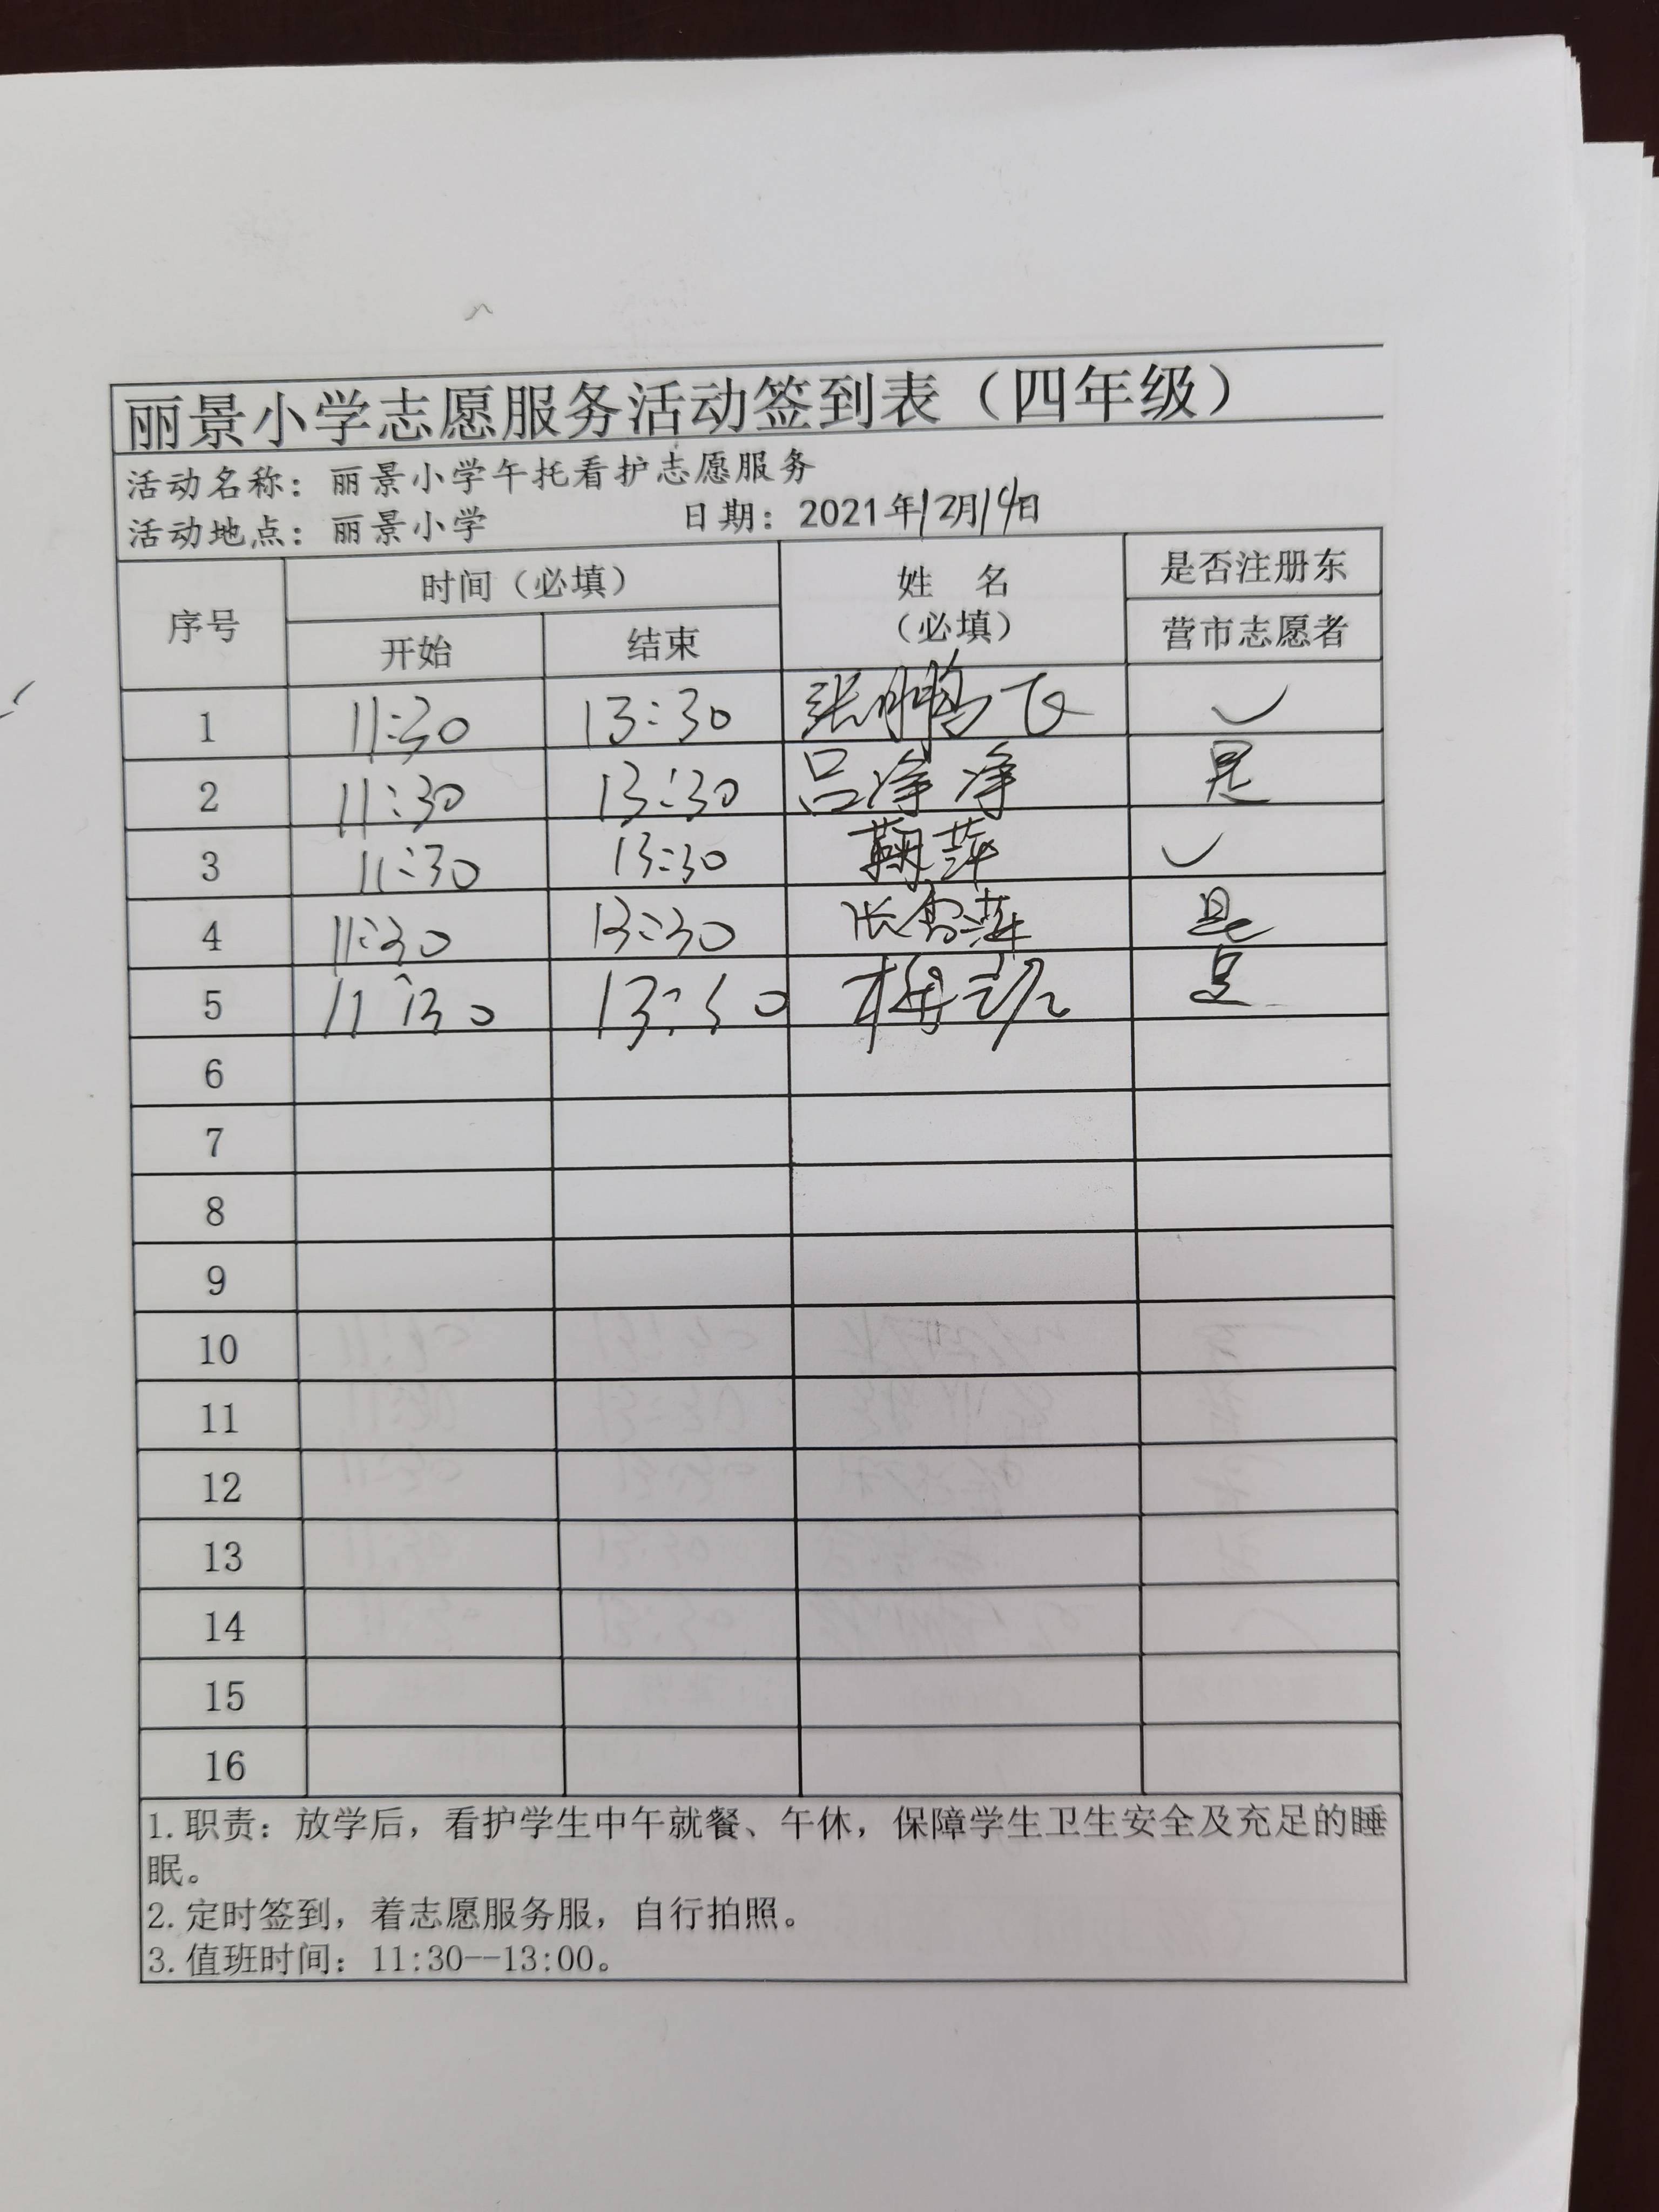 丽景小学志愿服务活动签到表（四年级）
活动名称：丽景小学午托看护志愿服务
活动地点：丽景小学 日期：2021年12月14日
序号 时间（必填） 姓 名（必填） 是否注册东营市志愿者
开始 结束
1 11:30 13:30 张鹏飞 ✓
2 11:30 13:30 吕净净 是
3 11:30 13:30 鞠萍 ✓
4 11:30 13:30 张雪萍 是
5 11:30 13:30 梅 是
6
7
8
9
10
11
12
13
14
15
16
1.职责：放学后，看护学生中午就餐、午休，保障学生卫生安全及充足的睡
眠。
2.定时签到，着志愿服务服，自行拍照。
3.值班时间：11:30--13:00。